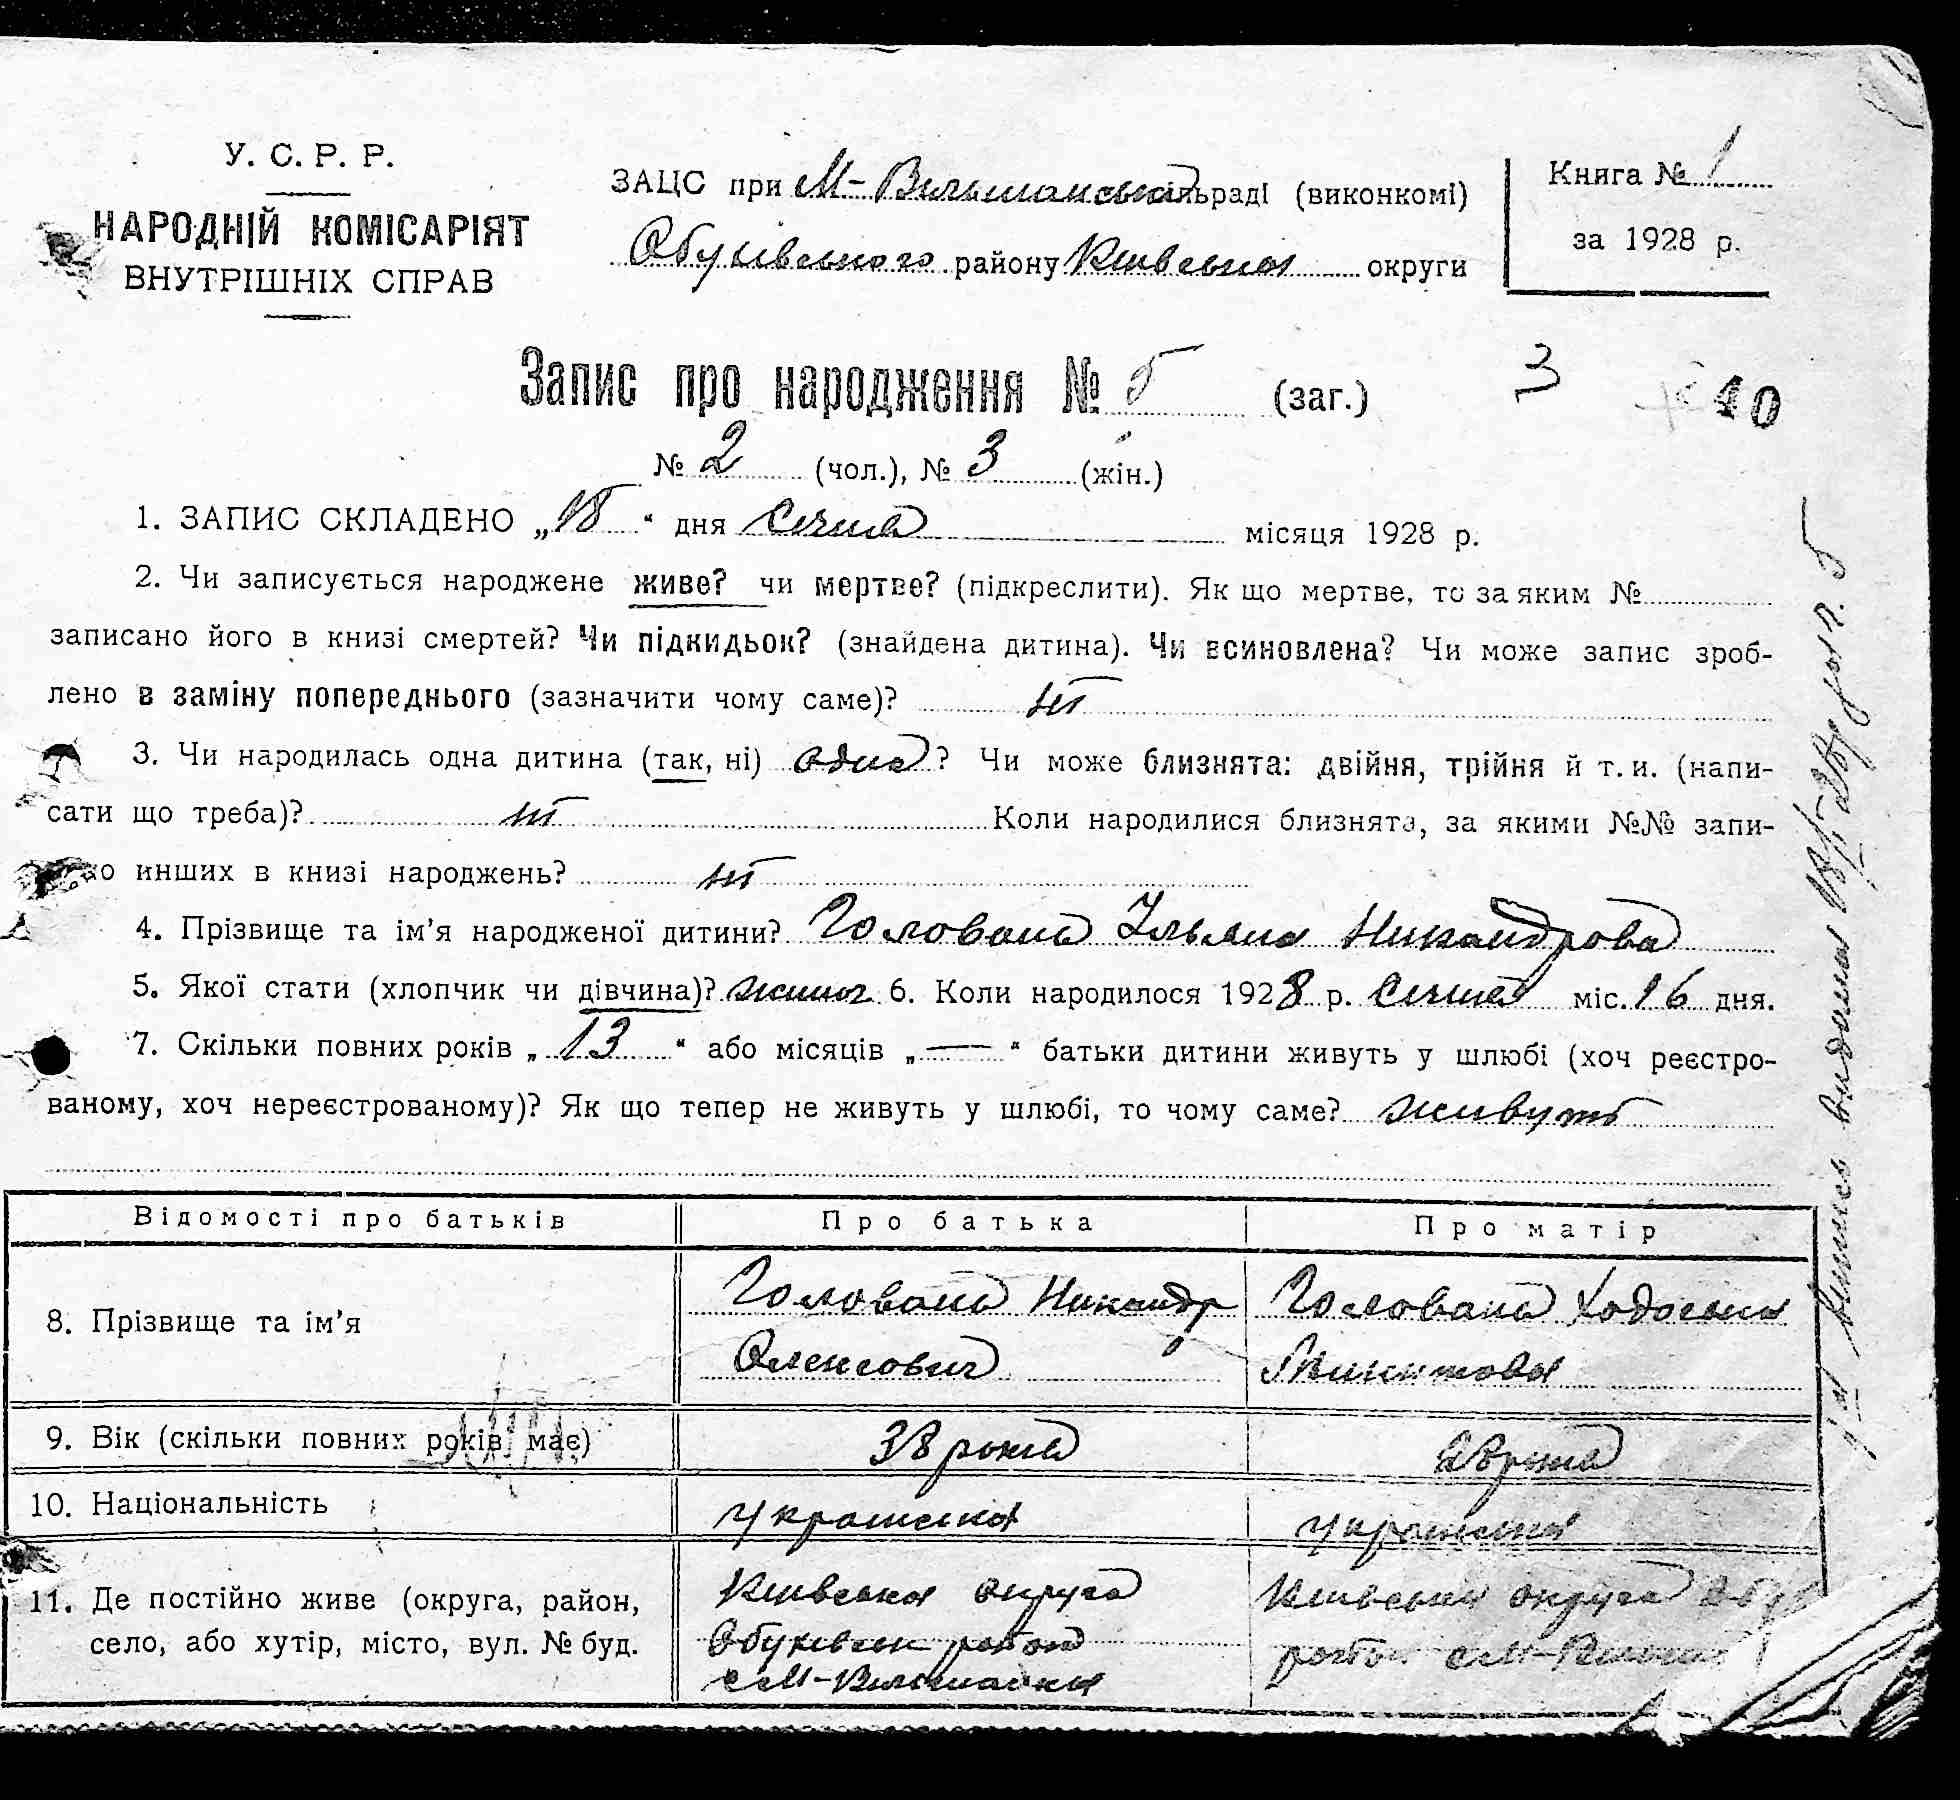 У. С. Р. Р.
НАРОДНІЙ КОМІСАРІЯТ
ВНУТРІШНІХ СПРАВ
ЗАЦС при М-Вільшанській сільраді (виконкомі)
Обухівського району Київська округи
Книга № 1
за 1928 р.
Запис про народження № 5 (заг.)
3
40
№ 2 (чол.), № 3 (жін.)
1. ЗАПИС СКЛАДЕНО „18“ дня Січня місяця 1928 р.
2. Чи записується народжене живе? чи мертве? (підкреслити). Як що мертве, то за яким №
записано його в книзі смертей? Чи підкидьок? (знайдена дитина). Чи всиновлена? Чи може запис зроб-
лено в заміну попереднього (зазначити чому саме)? ні
3. Чи народилась одна дитина (так, ні) одна? Чи може близнята: двійня, трійня й т. и. (напи-
сати що треба)? ні Коли народилися близнята, за якими №№ запи-
но инших в книзі народжень? ні
4. Прізвище та ім'я народженої дитини? Голована Ульяна Никандрова
5. Якої стати (хлопчик чи дівчина)? 6. Коли народилося 1928 р. Січня міс. 16 дня.
7. Скільки повних років „13“ або місяців „—“ батьки дитини живуть у шлюбі (хоч реєстро-
ваному, хоч нереєстрованому)? Як що тепер не живуть у шлюбі, то чому саме? живуть
Відомості про батьків Про батька Про матір
8. Прізвище та ім'я
Голована Никандр
Олексович
Голована Ходоська
Микитова
9. Вік (скільки повних років має) 38 років
10. Національність українська українська
11. Де постійно живе (округа, район,
село, або хутір, місто, вул. № буд.
Київська округа
Обухівськ район
с М-Вільшанка
Київська округа Обух
район с М-Вільшан